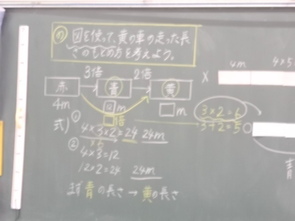 め 図を使って、黄の車の走った長
さのもとめ方を考えよう。
3倍 2倍
赤 青 黄
4m □m □m
□倍
式) ① 4×3×2=24 24m
② 4×3=12
12×2=24 24m
まず青の長さ→黄の長さ
3×2=6
3+2=5
4m
4×5